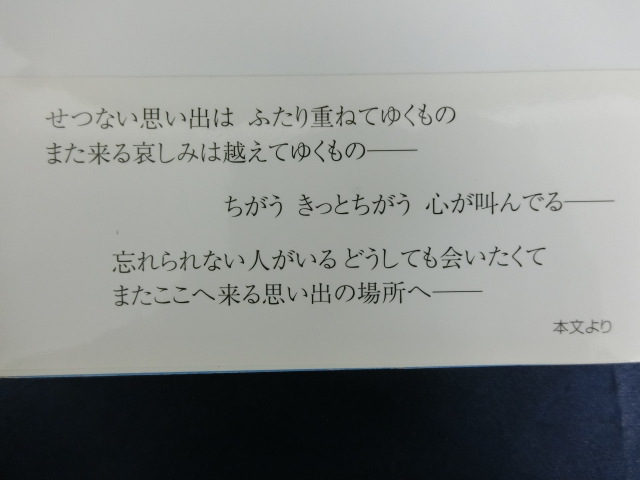 せつない思い出は ふたり重ねてゆくもの
また来る哀しみは越えてゆくもの――
ちがう きっとちがう 心が叫んでる――
忘れられない人がいる どうしても会いたくて
またここへ来る思い出の場所へ――
本文より